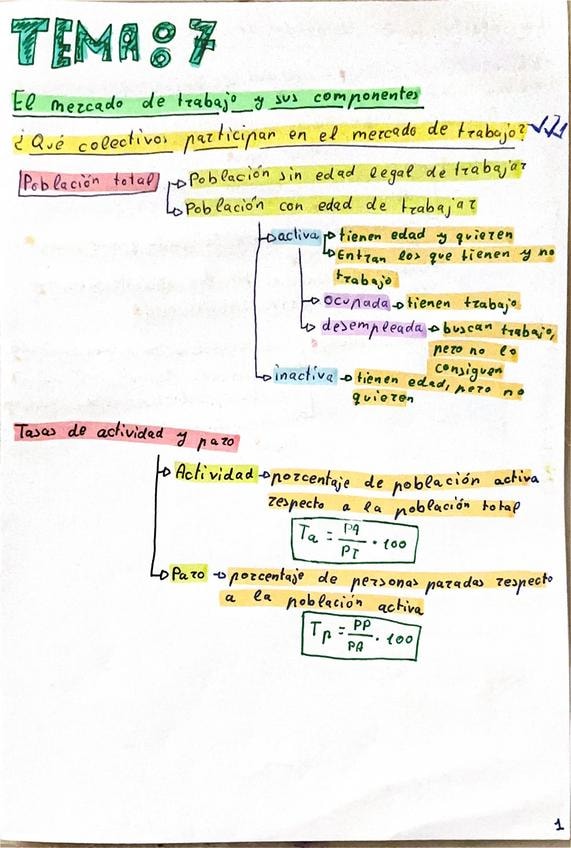 TEMA: 7
El mercado de trabajo y sus componentes
¿Qué colectivos participan en el mercado de trabajo?
Población total
Población sin edad legal de trabajar
Población con edad de trabajar
activa
tienen edad y quieren
Entran los que tienen y no
trabajo
ocupada → tienen trabajo
desempleada → buscan trabajo,
pero no lo
consiguen
inactiva → tienen edad, pero no
quieren
Tasas de actividad y paro
Actividad → porcentaje de población activa
respecto a la población total
Ta = PA/PT · 100
Paro → porcentaje de personas paradas respecto
a la población activa
Tp = PP/PA · 100
1